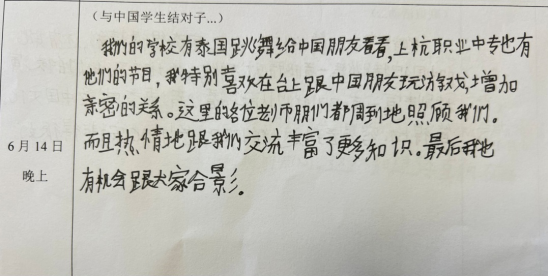 （与中国学生结对子...）
我们的学校有泰国跳舞给中国朋友看看,上杭职业中专也有
他们的节目，我特别喜欢在台上跟中国朋友玩游戏增加
亲密的关系。这里的各位老师朋们都周到地照顾我们。
而且热情地跟我们交流丰富了更多知识。最后我也
有机会跟大家合影。
6月14日
晚上